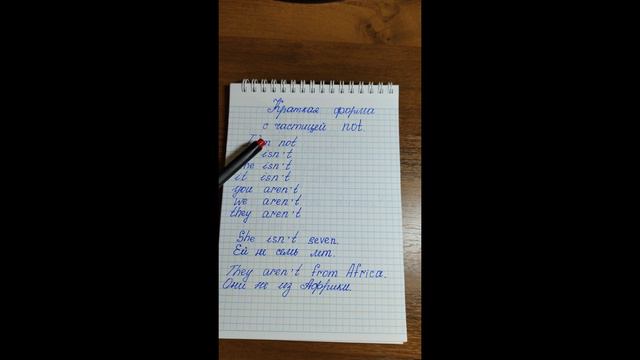 Краткая форма
с частицей not.
I'm not
isn't
she isn't
it isn't
you aren't
we aren't
they aren't
She isn't seven.
Ей не семь лет.
They aren't from Africa.
Они не из Африки.